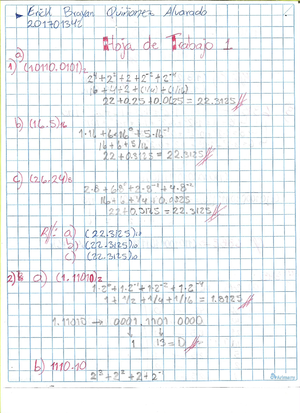 Erick Brayan Quiñonez Alvarado
201701342
Hoja de Trabajo 1
a)
1) (10110.0101)₂
2⁴+2²+2+2⁻²+2⁻⁴
16+4+2+(1/4)+(1/16)
22+0.25+0.0625 = 22.3125
b) (16.5)₁₆
1·16+6·16⁰+5·16⁻¹
16+6+5/16
22+0.3125 = 22.3125
c) (26.24)₈
2·8+6·8⁰+2·8⁻¹+4·8⁻²
16+6+1/4+0.0625
22+0.3125 = 22.3125
R// a) (22.3125)₁₀
b) (22.3125)₁₀
c) (22.3125)₁₀
2) a) (1.11010)₂
1·2⁰+1·2⁻¹+1·2⁻²+1·2⁻⁴
1+1/2+1/4+1/16 = 1.8125
1.11010 → 0001.1101 0000
1 13=D
b) 1110.10
2³+2²+2+2⁻¹